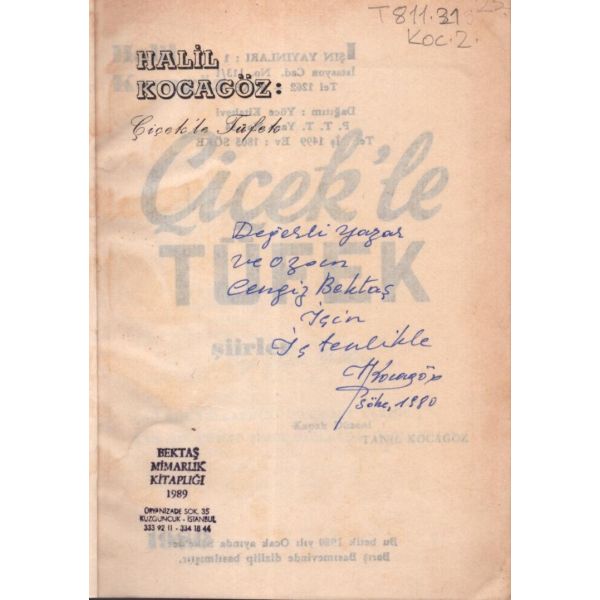 T 811.31
KOC.2.
HALİL
KOCAGÖZ:
Çiçek'le Tüfek
IŞIN YAYINLARI : 1
İstasyon Cad. No. 113/1
Tel 1262
Dağıtım : Yöce Kitabevi
P. T. T.
Tel İş 1499 Ev : 1803 SÖKE
Çiçek'le
TÜFEK
şiirler
Değerli yazar
ve ozan
Cengiz Bektaş
İçin
İçtenlikle
HKocagöz
Söke, 1980
Kapak Düzeni
TANIL KOCAGÖZ
BEKTAŞ
MİMARLIK
KİTAPLIĞI
1989
ÜRYANİZADE SOK. 35
KUZGUNCUK - İSTANBUL
333 92 11 - 334 18 44
1980
Bu betik 1980 yılı Ocak ayında
Barış Basımevinde dizilip basılmıştır.